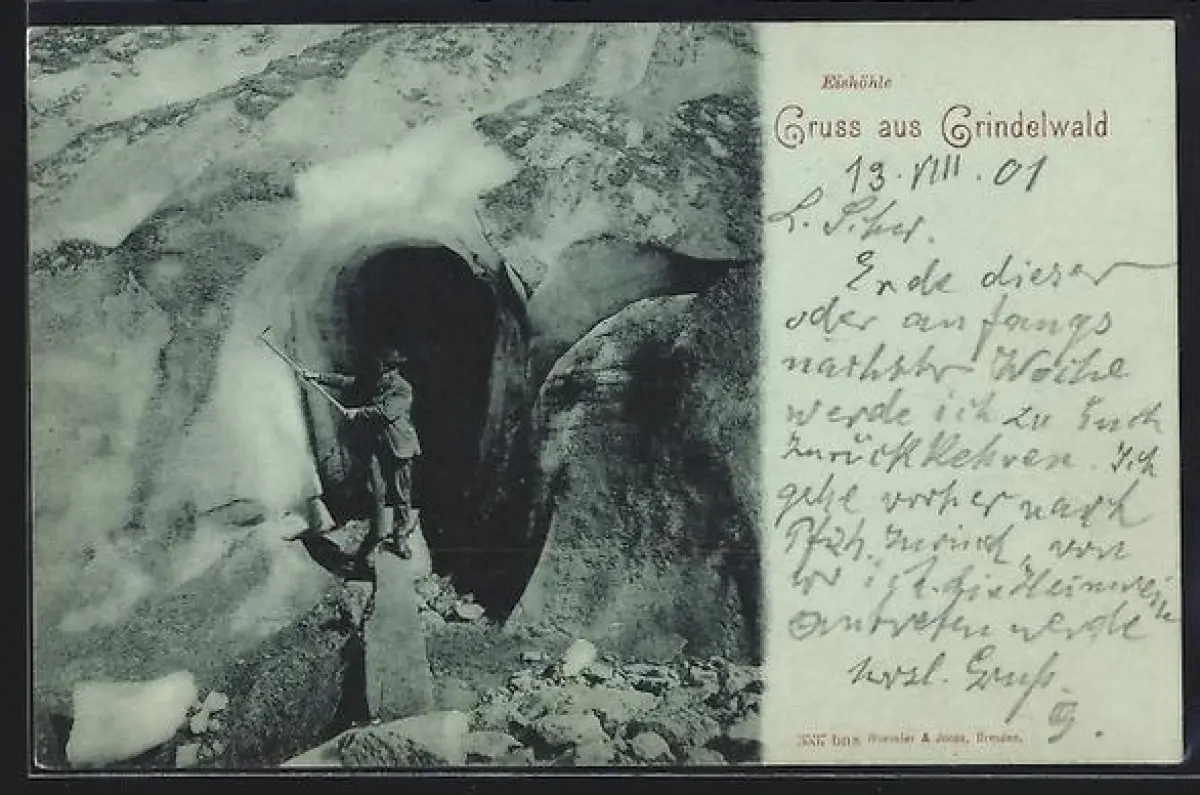 Eishöhle
Gruss aus Grindelwald
13.VIII.01
L.
Ende dieser
oder anfangs
nächster Woche
werde ich zu Euch
zurückkehren. Ich
gehe vorher nach
zurück, von
wo ich
antreten werde
herzl. Gruß.
Stengler & Jonas, Dresden.